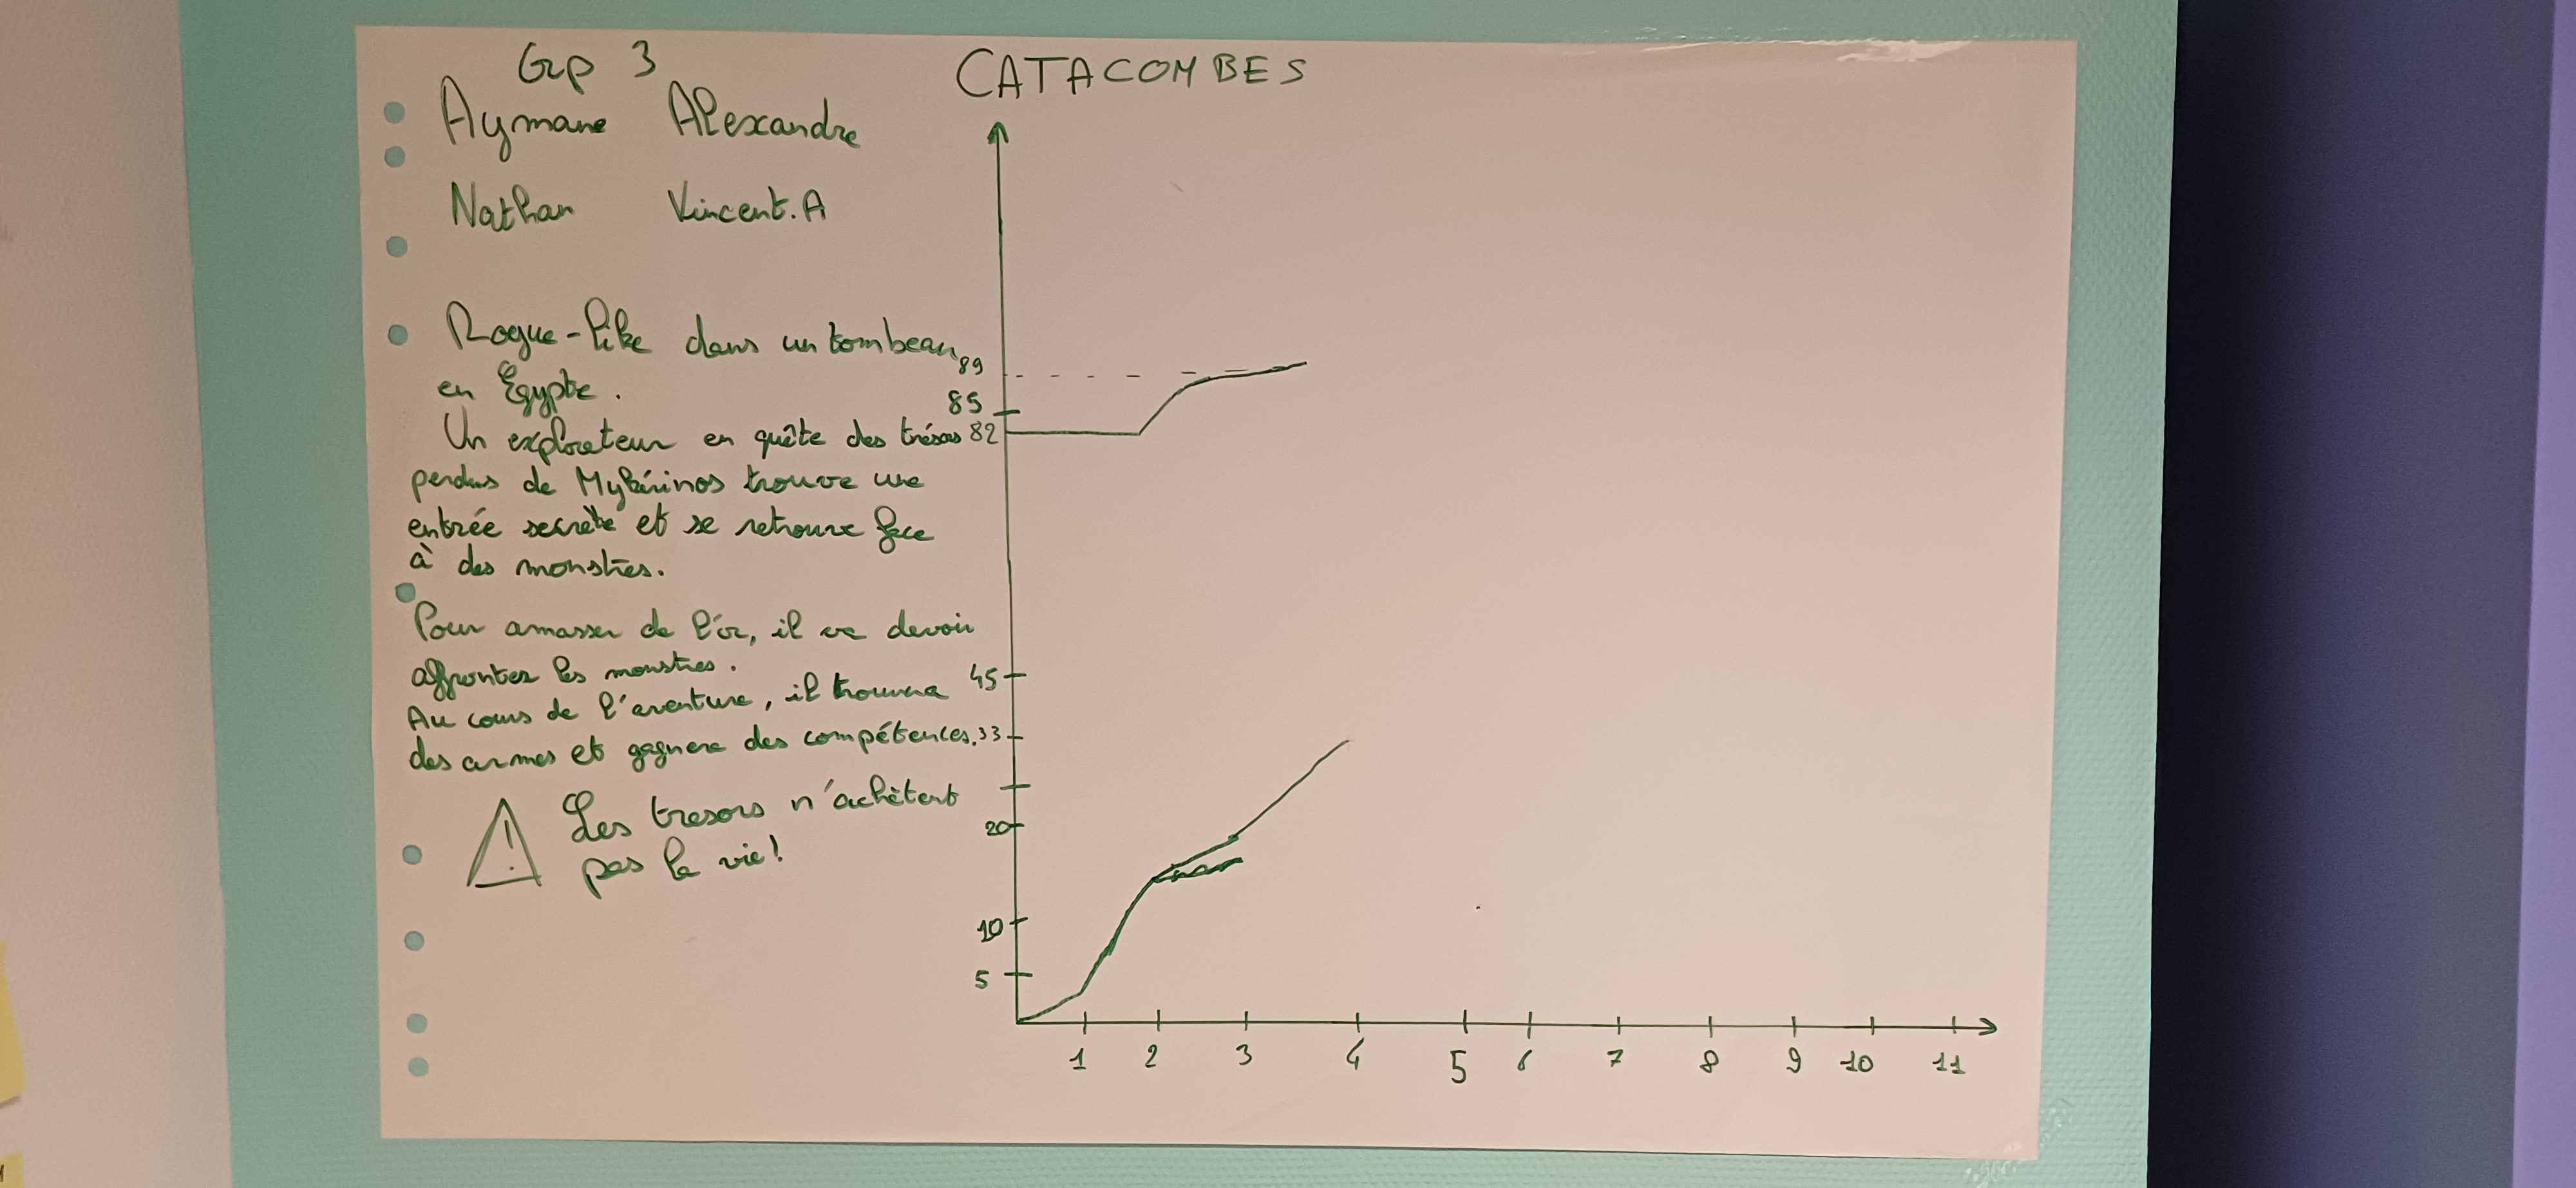 Grp 3
CATACOMBES
Aymane Alexandre
Nathan Vincent.A
Rogue-like dans un tombeau
en Egypte.
Un explorateur en quête des trésors
perdus de Mykérinos trouve une
entrée secrète et se retrouve face
à des monstres.
Pour amasser de l'or, il va devoir
affronter les monstres.
Au cours de l'aventure, il trouvera
des armes et gagnera des compétences.
! Les tresors n'achètent
pas la vie!
89
85
82
45
33
20
10
5
1 2 3 4 5 6 7 8 9 10 11